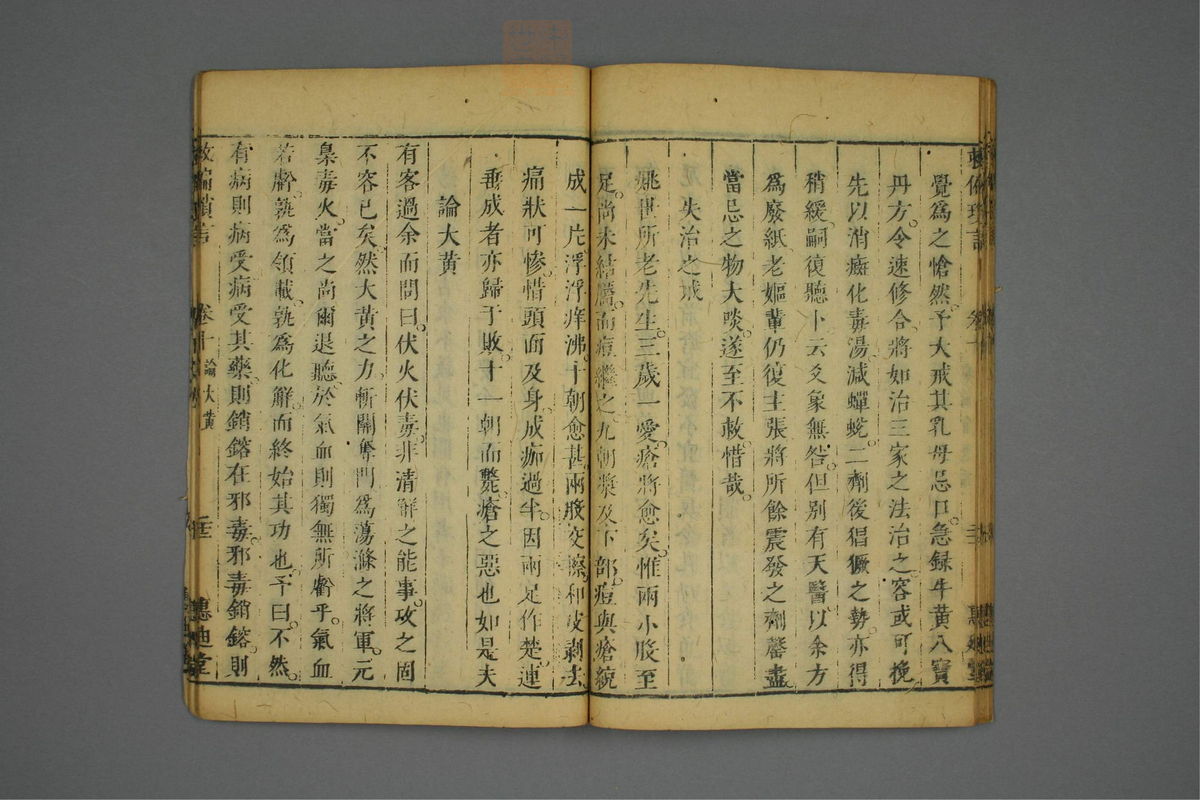 覺為之愴然予大戒其乳母忌口急録牛黃八寶
丹方令速修合將如治三家之法治之容或可挽
先以消癍化毒湯減蟬蛻二劑後猖獗之勢亦得
稍緩嗣復聽卜云爻象無咎但別有天醫以余方
為廢紙老嫗輩仍復主張將所餘震發之劑罄盡
當忌之物大啖遂至不救惜哉
失治之戒
姚世所老先生三歲一愛瘡將愈矣惟兩小股至
足尚未結靨而痘繼之九朝漿及下部痘與瘡統
成一片浮浮痒沸十朝愈甚兩股交擦和皮剥去
痛狀可慘惜頭面及身成痂過半因兩足作楚連
番成者亦歸于敗十一朝而斃瘡之惡也如是夫
論大黃
有客過余而問曰伏火伏毒非清解之能事攻之固
不容已矣然大黃之力斬關奪門為蕩滌之將軍元
梟毒火當之尚爾退聽於氣血則獨無所虧乎氣血
若虧孰為領載孰為化解而終始其功也予曰不然
有病則病受病受其藥則銷鎔在邪毒邪毒銷鎔則
卷十 論大黃 惠迪堂